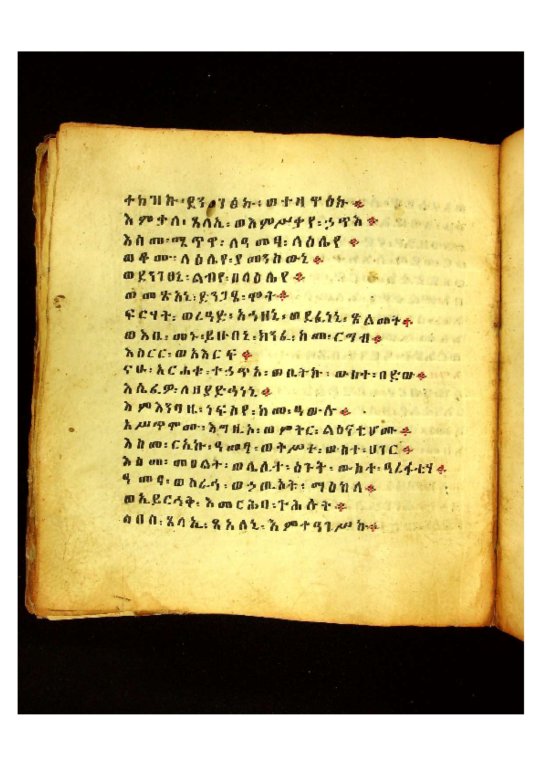 ተከዝኩ፡ ደንገፅኩ፡ ወተዛዋዕኩ።
እምቃለ፡ ጸላኢ፡ ወእምሥቃየ፡ ኃጥእ።
እስመ፡ ሜጥዋ፡ ለዓመፃ፡ ላዕሌየ።
ወቆሙ፡ ላዕሌየ፡ ያመንስዉኒ።
ወደንገፀኒ፡ ልብየ፡ በላዕሌየ።
ወመጽአኒ፡ ድንጋፄ፡ ሞት።
ፍርሃት፡ ወረዓድ፡ አኀዘኒ፡ ወደፈነኒ፡ ጽልመት።
ወእቤ፡ መኑ፡ ይሁበኒ፡ ክንፈ፡ ከመ፡ ርግብ።
እስርር፡ ወአእርፍ።
ናሁ፡ አርሐቁ፡ ተኃጥአ፡ ወቤትኩ፡ ውስተ፡ በድው።
እሴፈዎ፡ ለዘያድኅነኒ።
እምእንግዚ፡ ነፍስየ፡ ከመ፡ ዓውሉ።
አሥጥሞሙ፡ እግዚኦ፡ ወምትር፡ ልሳናቲሆሙ።
እስመ፡ ርኢኩ፡ ዓመፃ፡ ወቅሥተ፡ ውስተ፡ ሀገር።
እስመ፡ መዓልት፡ ወሌሊት፡ ውስተ፡ ዓረፋቲሃ።
ዓመፃ፡ ወስራሓ፡ ወኃጢአት፡ ማዕከላ።
ወኢይርሓቅ፡ እመርሕባ፡ ጕሕሉት።
ሶበሰ፡ ጸላኢ፡ ጸአለኒ፡ እምተዓገሥኩ።